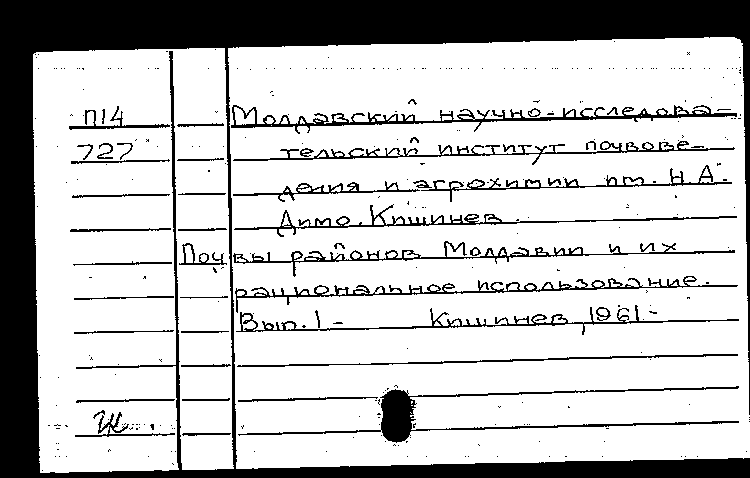 П14 Молдавский научно-исследова-
727 тельский институт почвове-
дения и агрохимии им. Н.А.
Димо. Кишинев.
Почвы районов Молдавии и их
рациональное использование.
Вып. 1 - Кишинев, 1961 -